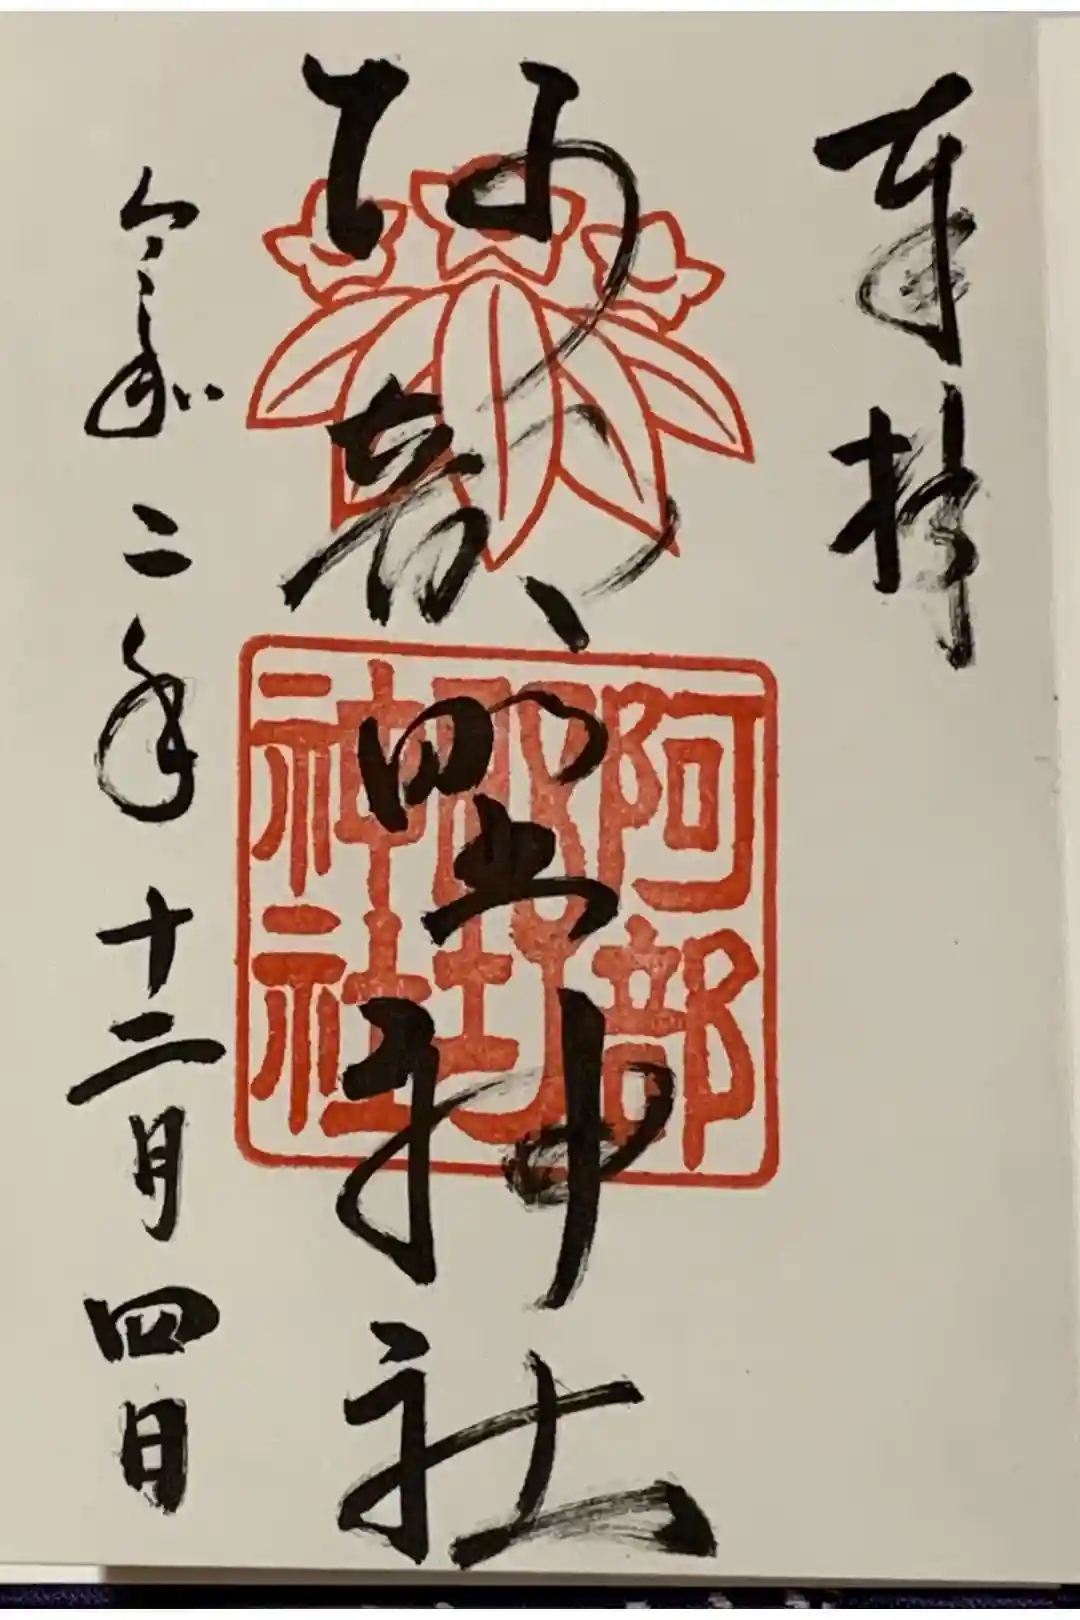 奉拝
阿部野神社
阿部野神社
令和二年十二月四日